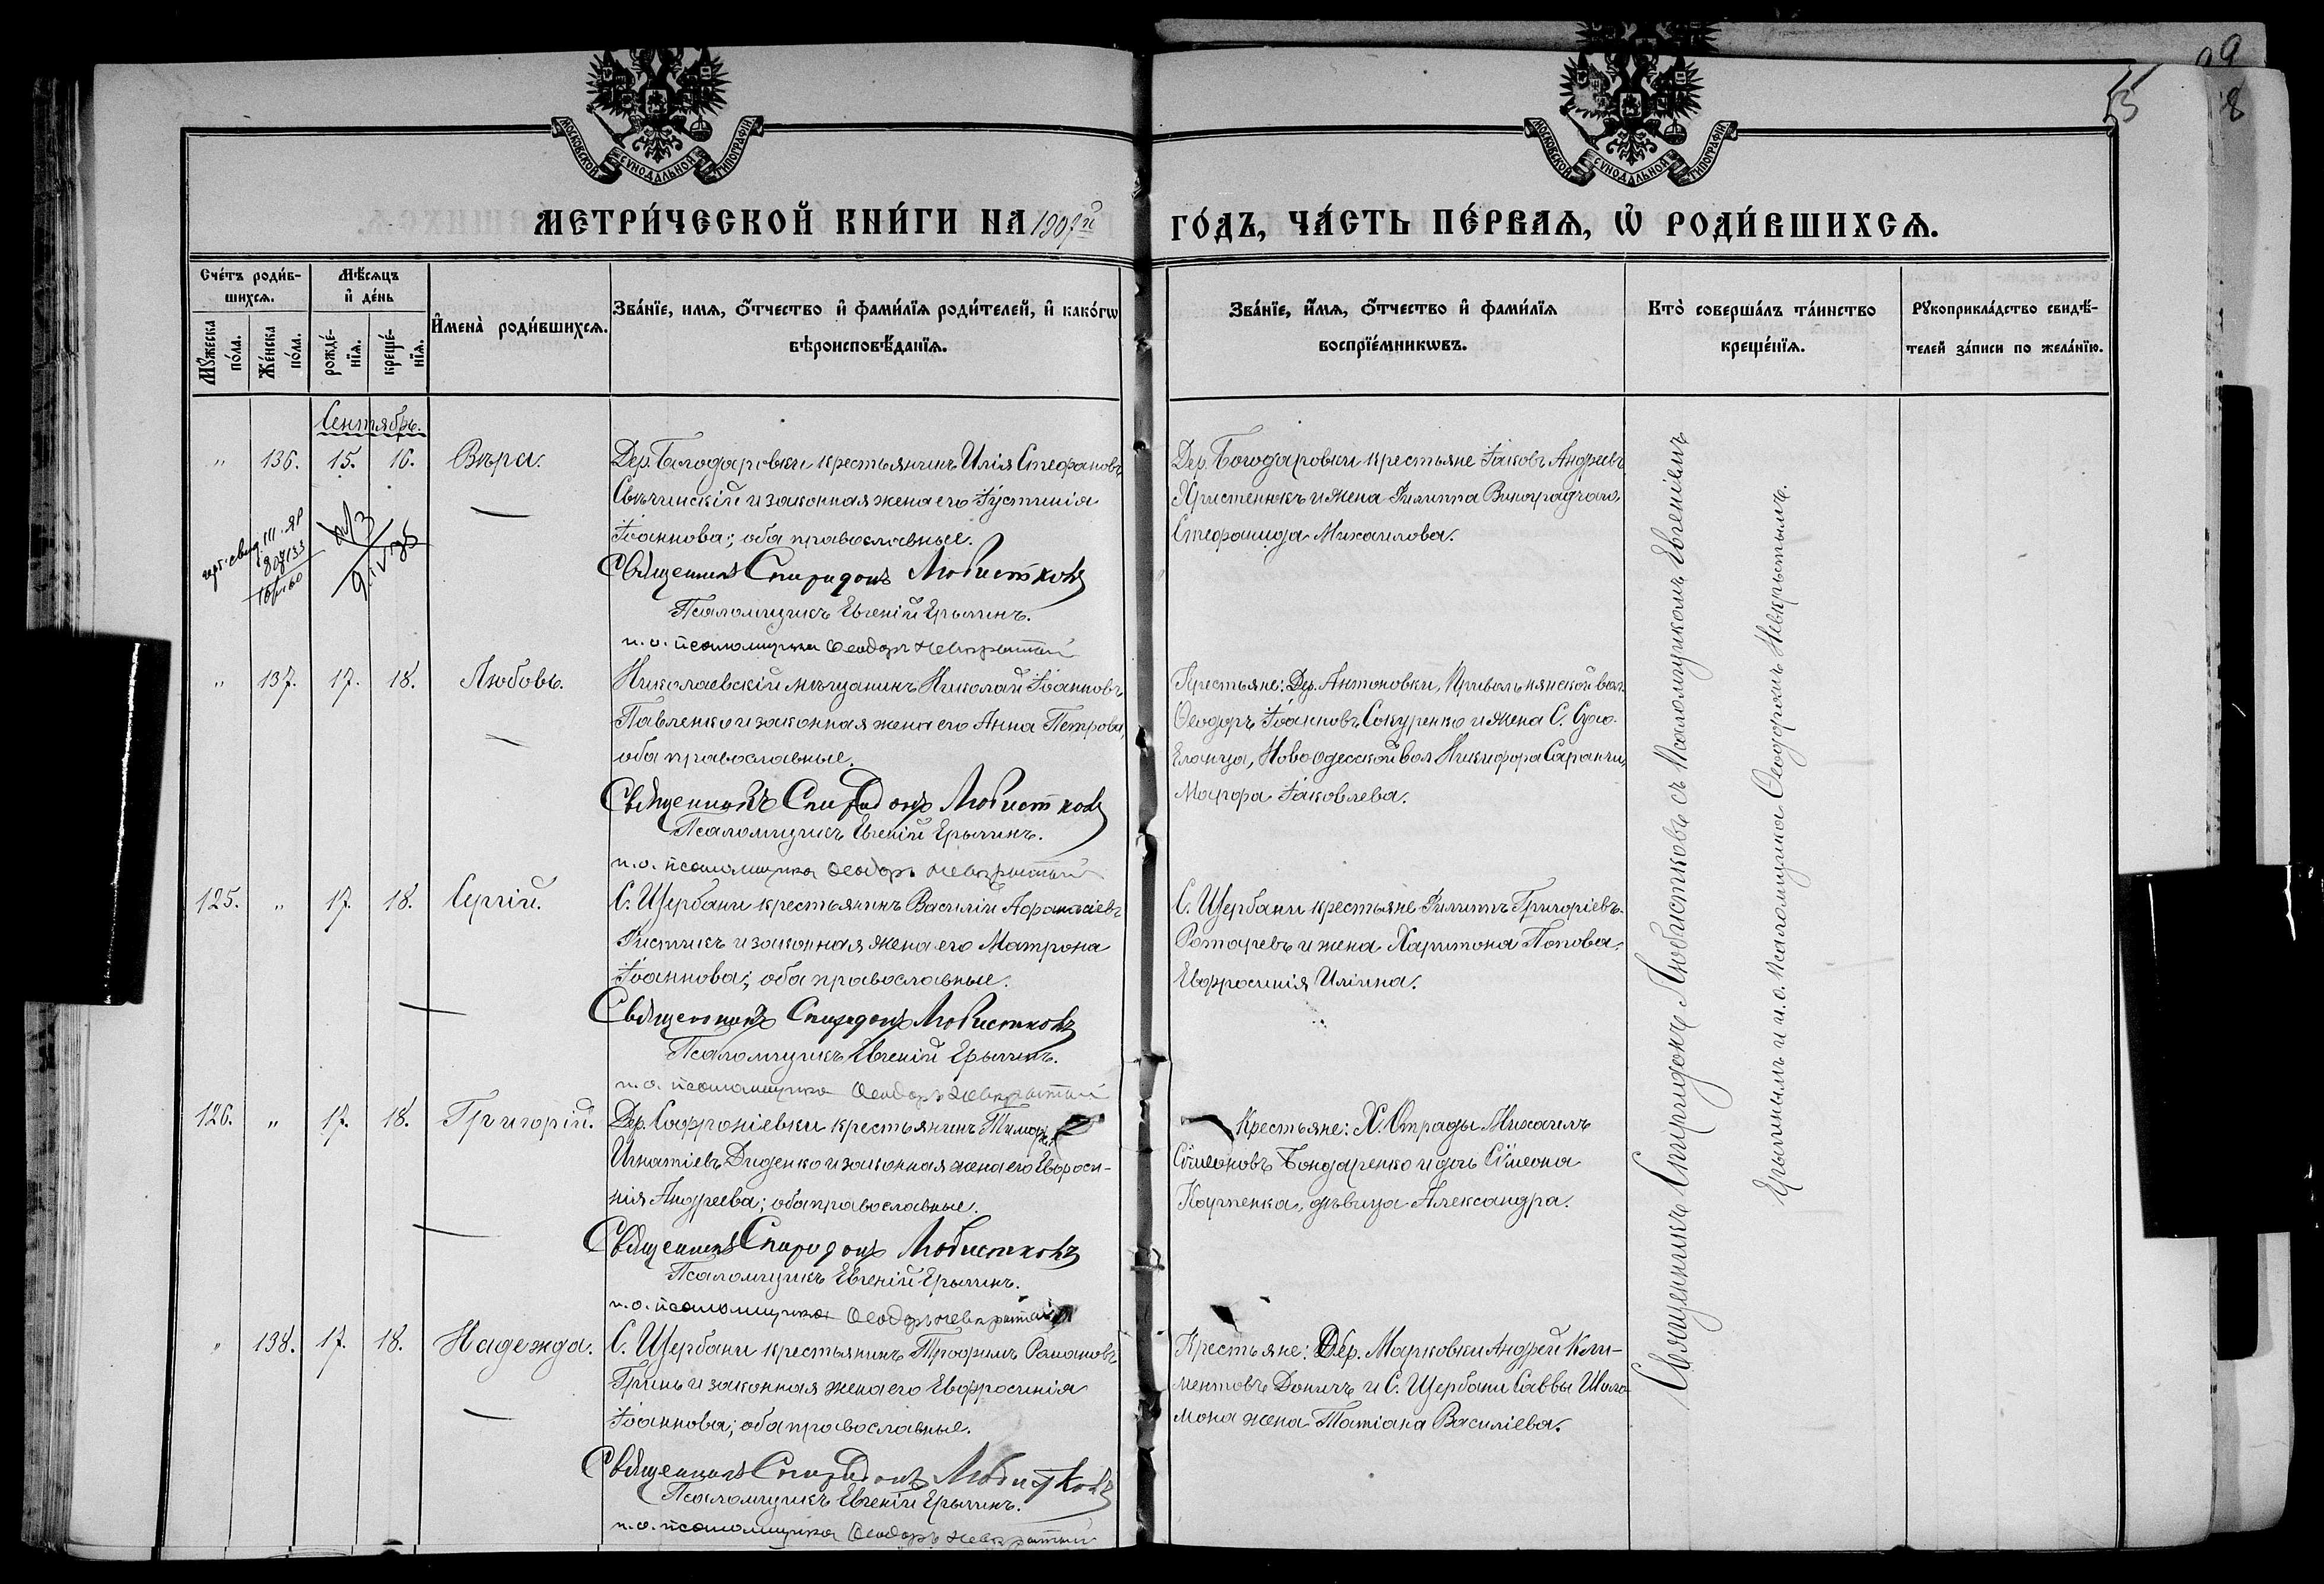 99
8
МОСКОВСКОЙ СѴНОДАЛЬНОЙ ТИПОГРАФІИ
МОСКОВСКОЙ СѴНОДАЛЬНОЙ ТИПОГРАФІИ
МЕТРИ́ЧЕСКОЙ КНИ́ГИ НА
ГО́ДЪ, ЧА́СТЬ ПЕ́РВАЯ, Ѿ РОДИ́ВШИХСЯ.
Сче́тъ роди́в-
шихся.
Мѣ́сяцъ
и҆ де́нь
Мꙋ́жеска
по́ла.
Же́нска
по́ла.
рожде́-
нїя.
креще́-
нїя.
И҆мена̀ роди́вшихся.
Зва́нїе, имя, ѻ҆́тчество и҆ фами́лїя роди́телей, и҆ како́гѡ
вѣроисповѣ́данїя.
Зва́нїе, и҆́мя, ѻ҆́тчество и҆ фами́лїя
воспрїе́мникѡвъ.
Кто̀ соверша́лъ та́инство
креще́нїя.
Рꙋкоприкла́дство свидѣ́-
телей за́писи по жела́нїю.
Сентябрь.
" 136. 15. 16. Вѣра.
Дер. Богодаровки крестьянинъ Илія Стефановъ
Свѣчинскій и законная жена его Іустинія
Іоаннова; оба православные.
Священникъ Спиридонъ Любистковъ
Псаломщикъ Евгеній Ерыгинъ.
и. о. псаломщика Ѳеодоръ Невкрытый
Дер. Богодаровки крестьяне Іаковъ Андреевъ
Христенюкъ и жена Филиппа
Стефанида Михаилова.
" 137. 17. 18. Любовь.
Николаевскій мѣщанинъ Николай Іоанновъ
Павленко и законная жена его Анна Петрова,
оба православные.
Священникъ Спиридонъ Любистковъ
Псаломщикъ Евгеній Ерыгинъ.
и. о. псаломщика Ѳеодоръ Невкрытый
Крестьяне: Дер. Антоновки, Привольнянской вол.
Ѳеодоръ Іоанновъ Сокуренко и жена С. Сухо-
Еланца, Ново Одесской вол Никифора Саранчи,
Маѵра Іаковлева.
125. " 17. 18. Сергій.
С. Щербани крестьянинъ Василій Аѳанасіевъ
и законная жена его Матрона
Іоаннова; оба православные.
Священникъ Спиридонъ Любистковъ
Псаломщикъ Евгеній Ерыгинъ.
и. о. псаломщика Ѳеодоръ Невкрытый
С. Щербани крестьяне Филиппъ Григоріевъ
Ротаревъ и жена Харитона Попова,
Евфросинія Иліина.
126. " 17. 18. Григорій.
Дер. Софроніевки крестьянинъ
Игнатіевъ Диденко и законная жена его Евфроси-
нія Андреева; оба православные.
Священникъ Спиридонъ Любистковъ
Псаломщикъ Евгеній Ерыгинъ.
и. о. псаломщика Ѳеодоръ Невкрытый
Крестьяне: Х. Отрады Михаилъ
Сѵмеоновъ Бондаренко и дочь Сѵмеона
Карпенка, дѣвица Александра.
" 138. 17. 18. Надежда.
С. Щербани крестьянинъ Трофимъ Романовъ
Гринь и законная жена его Евфросинія
Іоаннова; оба православные.
Священникъ Спиридонъ Любистковъ
Псаломщикъ Евгеній Ерыгинъ.
и. о. псаломщика Ѳеодоръ Невкрытый
Крестьяне: Дер. Марковки Андрей Кли-
ментовъ Доничъ и С. Щербани Саввы Шала-
мона жена Татіана Василіева.
Священникъ Спиридонъ Любистковъ съ Псаломщикомъ Евгеніемъ
Ерыгинымъ и и. о. псаломщика Ѳеодоромъ Невкрытымъ.